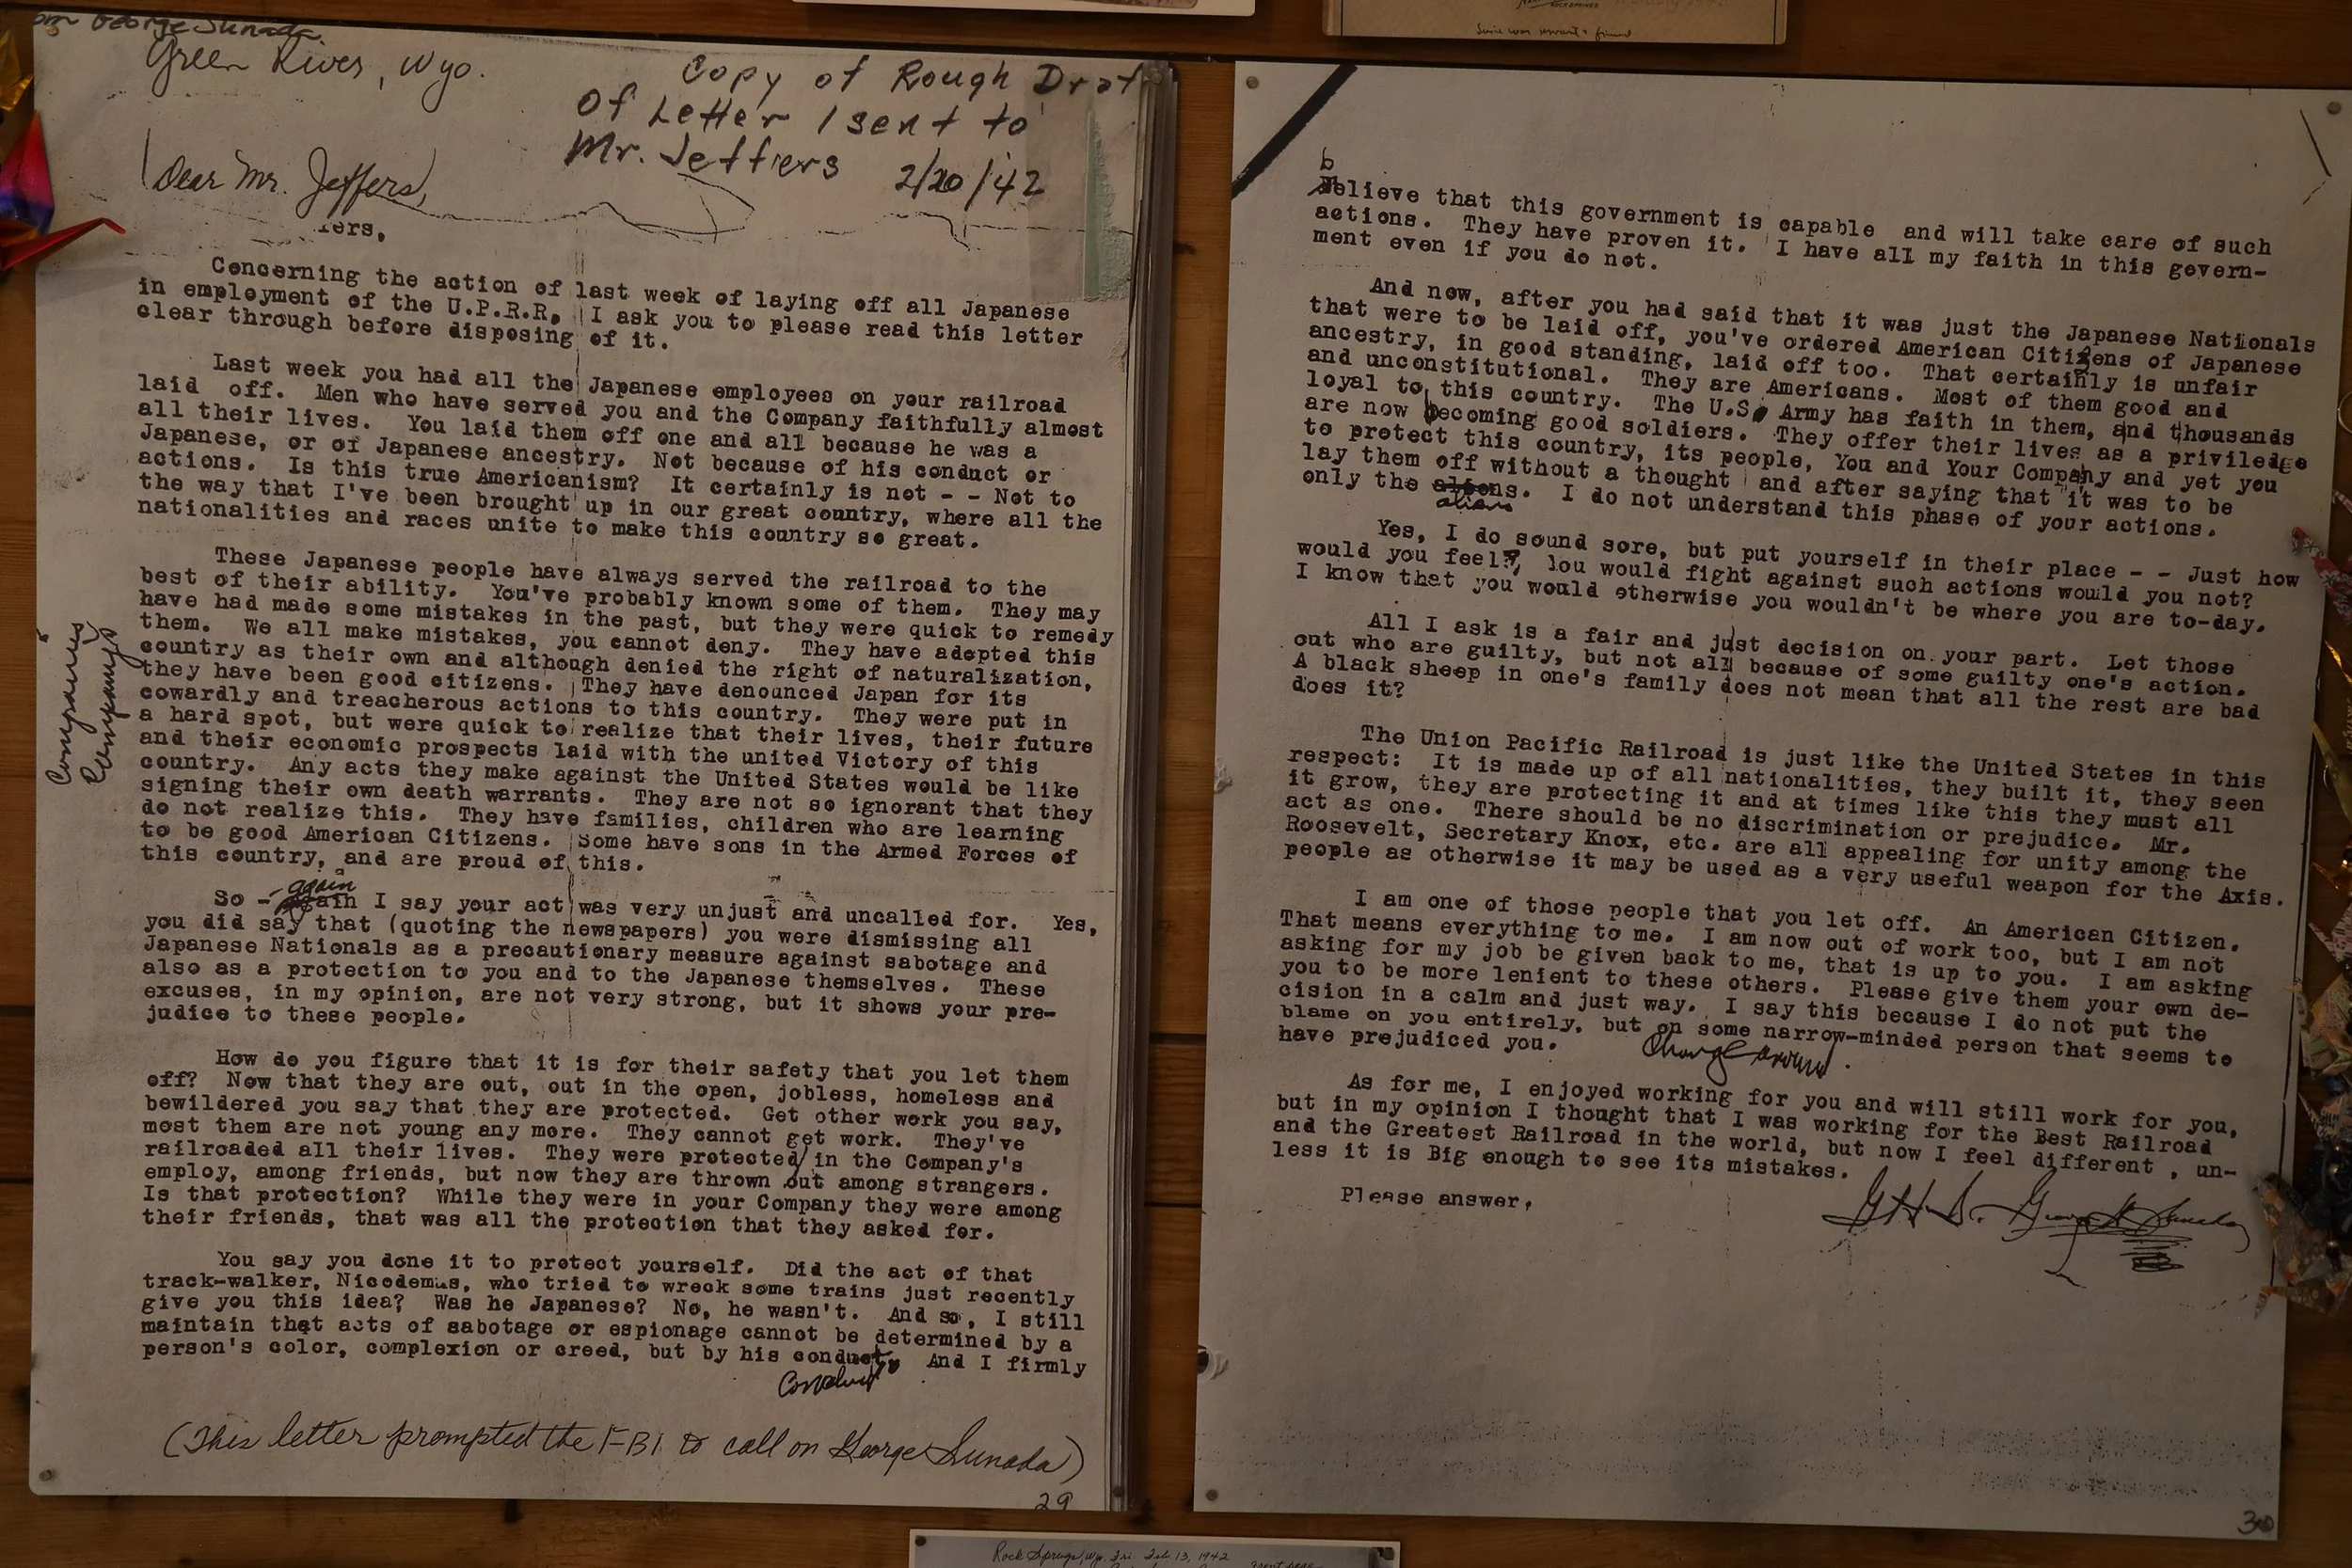 George Sunada
Green River, Wyo.
Copy of Rough Draft
Of Letter I sent to
Mr. Jeffers 2/20/42
Dear Mr. Jeffers,
ers,
Concerning the action of last week of laying off all Japanese
in employment of the U.P.R.R. I ask you to please read this letter
clear through before disposing of it.
Last week you had all the Japanese employees on your railroad
laid off. Men who have served you and the Company faithfully almost
all their lives. You laid them off one and all because he was a
Japanese, or of Japanese ancestry. Not because of his conduct or
actions. Is this true Americanism? It certainly is not - - Not to
the way that I've been brought up in our great country, where all the
nationalities and races unite to make this country so great.
These Japanese people have always served the railroad to the
best of their ability. You've probably known some of them. They may
have had made some mistakes in the past, but they were quick to remedy
them. We all make mistakes, you cannot deny. They have adopted this
country as their own and although denied the right of naturalization,
they have been good citizens. They have denounced Japan for its
cowardly and treacherous actions to this country. They were put in
a hard spot, but were quick to realize that their lives, their future
and their economic prospects laid with the united Victory of this
country. Any acts they make against the United States would be like
signing their own death warrants. They are not so ignorant that they
do not realize this. They have families, children who are learning
to be good American Citizens. Some have sons in the Armed Forces of
this country, and are proud of this.
Companies
Company's
again
So - again I say your act was very unjust and uncalled for. Yes,
you did say that (quoting the newspapers) you were dismissing all
Japanese Nationals as a precautionary measure against sabotage and
also as a protection to you and to the Japanese themselves. These
excuses, in my opinion, are not very strong, but it shows your pre-
judice to these people.
How do you figure that it is for their safety that you let them
off? Now that they are out, out in the open, jobless, homeless and
bewildered you say that they are protected. Get other work you say,
most them are not young any more. They cannot get work. They've
railroaded all their lives. They were protected in the Company's
employ, among friends, but now they are thrown out among strangers.
Is that protection? While they were in your Company they were among
their friends, that was all the protection that they asked for.
You say you done it to protect yourself. Did the act of that
track-walker, Nicodemus, who tried to wreck some trains just recently
give you this idea? Was he Japanese? No, he wasn't. And so, I still
maintain that acts of sabotage or espionage cannot be determined by a
person's color, complexion or creed, but by his conduct. And I firmly
Conduct
(This letter prompted the FBI to call on George Sunada)
29
b
Believe that this government is capable and will take care of such
actions. They have proven it. I have all my faith in this govern-
ment even if you do not.
And now, after you had said that it was just the Japanese Nationals
that were to be laid off, you've ordered American Citizens of Japanese
ancestry, in good standing, laid off too. That certainly is unfair
and unconstitutional. They are Americans. Most of them good and
loyal to this country. The U.S. Army has faith in them, and thousands
are now becoming good soldiers. They offer their lives as a priviledge
to protect this country, its people, You and Your Company and yet you
lay them off without a thought and after saying that it was to be
only the aliens. I do not understand this phase of your actions.
aliens
Yes, I do sound sore, but put yourself in their place - - Just how
would you feel? You would fight against such actions would you not?
I know that you would otherwise you wouldn't be where you are to-day.
All I ask is a fair and just decision on your part. Let those
out who are guilty, but not all because of some guilty one's action.
A black sheep in one's family does not mean that all the rest are bad
does it?
The Union Pacific Railroad is just like the United States in this
respect: It is made up of all nationalities, they built it, they seen
it grow, they are protecting it and at times like this they must all
act as one. There should be no discrimination or prejudice. Mr.
Roosevelt, Secretary Knox, etc. are all appealing for unity among the
people as otherwise it may be used as a very useful weapon for the Axis.
I am one of those people that you let off. An American Citizen.
That means everything to me. I am now out of work too, but I am not
asking for my job be given back to me, that is up to you. I am asking
you to be more lenient to these others. Please give them your own de-
cision in a calm and just way. I say this because I do not put the
blame on you entirely, but on some narrow-minded person that seems to
have prejudiced you.
Change around.
As for me, I enjoyed working for you and will still work for you,
but in my opinion I thought that I was working for the Best Railroad
and the Greatest Railroad in the world, but now I feel different , un-
less it is Big enough to see its mistakes.
Please answer,
G.H.S. George H Sunada
30
Rock Springs, Wy. Fri. Feb 13, 1942
Front page